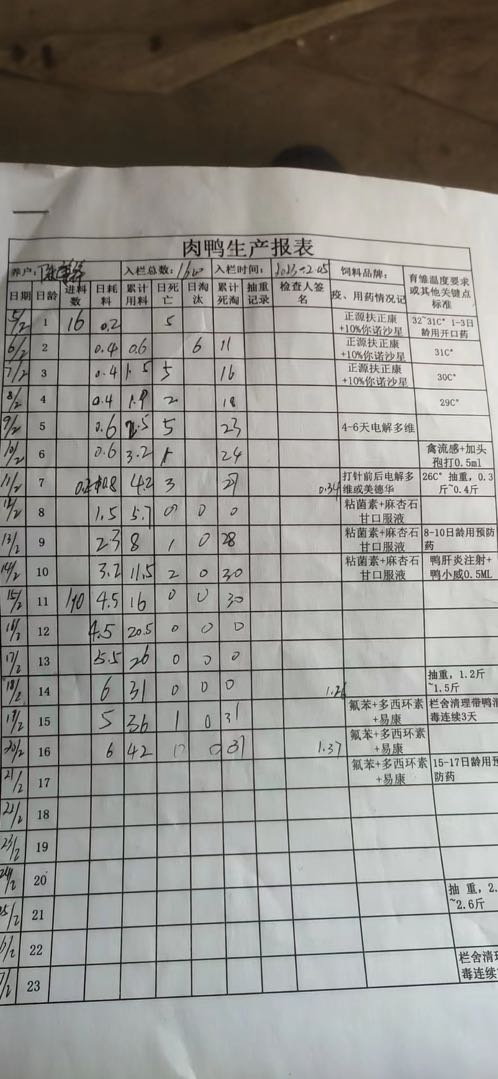 肉鸭生产报表
养户: 入栏总数: 入栏时间: 2023.2.05 饲料品牌: 育雏温度要求或其他关键点标准
日期 日龄 进料数 日耗料 累计用料 日死亡 日淘汰 累计死淘 抽重记录 检查人签名 疫、用药情况记
5/2 1 16 0.2 5 正源扶正康+10%你诺沙星 32~31C° 1-3日龄用开口药
6/2 2 0.4 0.6 6 11 正源扶正康+10%你诺沙星 31C°
7/2 3 0.4 1.5 5 16 正源扶正康+10%你诺沙星 30C°
8/2 4 0.4 1.9 2 18 29C°
9/2 5 0.6 2.5 5 23 4-6天电解多维
10/2 6 0.6 3.2 1 24 禽流感+加头孢打0.5ml
11/2 7 0.8 4.2 3 27 0.34 打针前后电解多维或美德华 26C° 抽重,0.3斤~0.4斤
12/2 8 1.5 5.7 0 0 0 粘菌素+麻杏石甘口服液
13/2 9 2.3 8 1 0 28 粘菌素+麻杏石甘口服液 8-10日龄用预防药
14/2 10 3.2 11.5 2 0 30 粘菌素+麻杏石甘口服液 鸭肝炎注射+鸭小威0.5ML
15/2 11 140 4.5 16 0 0 30
16/2 12 4.5 20.5 0 0 0
17/2 13 5.5 26 0 0 0
18/2 14 6 31 0 0 0 抽重,1.2斤~1.5斤
19/2 15 5 36 1 0 31 氟苯+多西环素+易康 栏舍清理带鸭消毒连续3天
20/2 16 6 42 0 0 31 1.37 氟苯+多西环素+易康
21/2 17 氟苯+多西环素+易康 15-17日龄用预防药
22/2 18
23/2 19
24/2 20
25/2 21 抽重,2.~2.6斤
22
23 栏舍清理毒连续